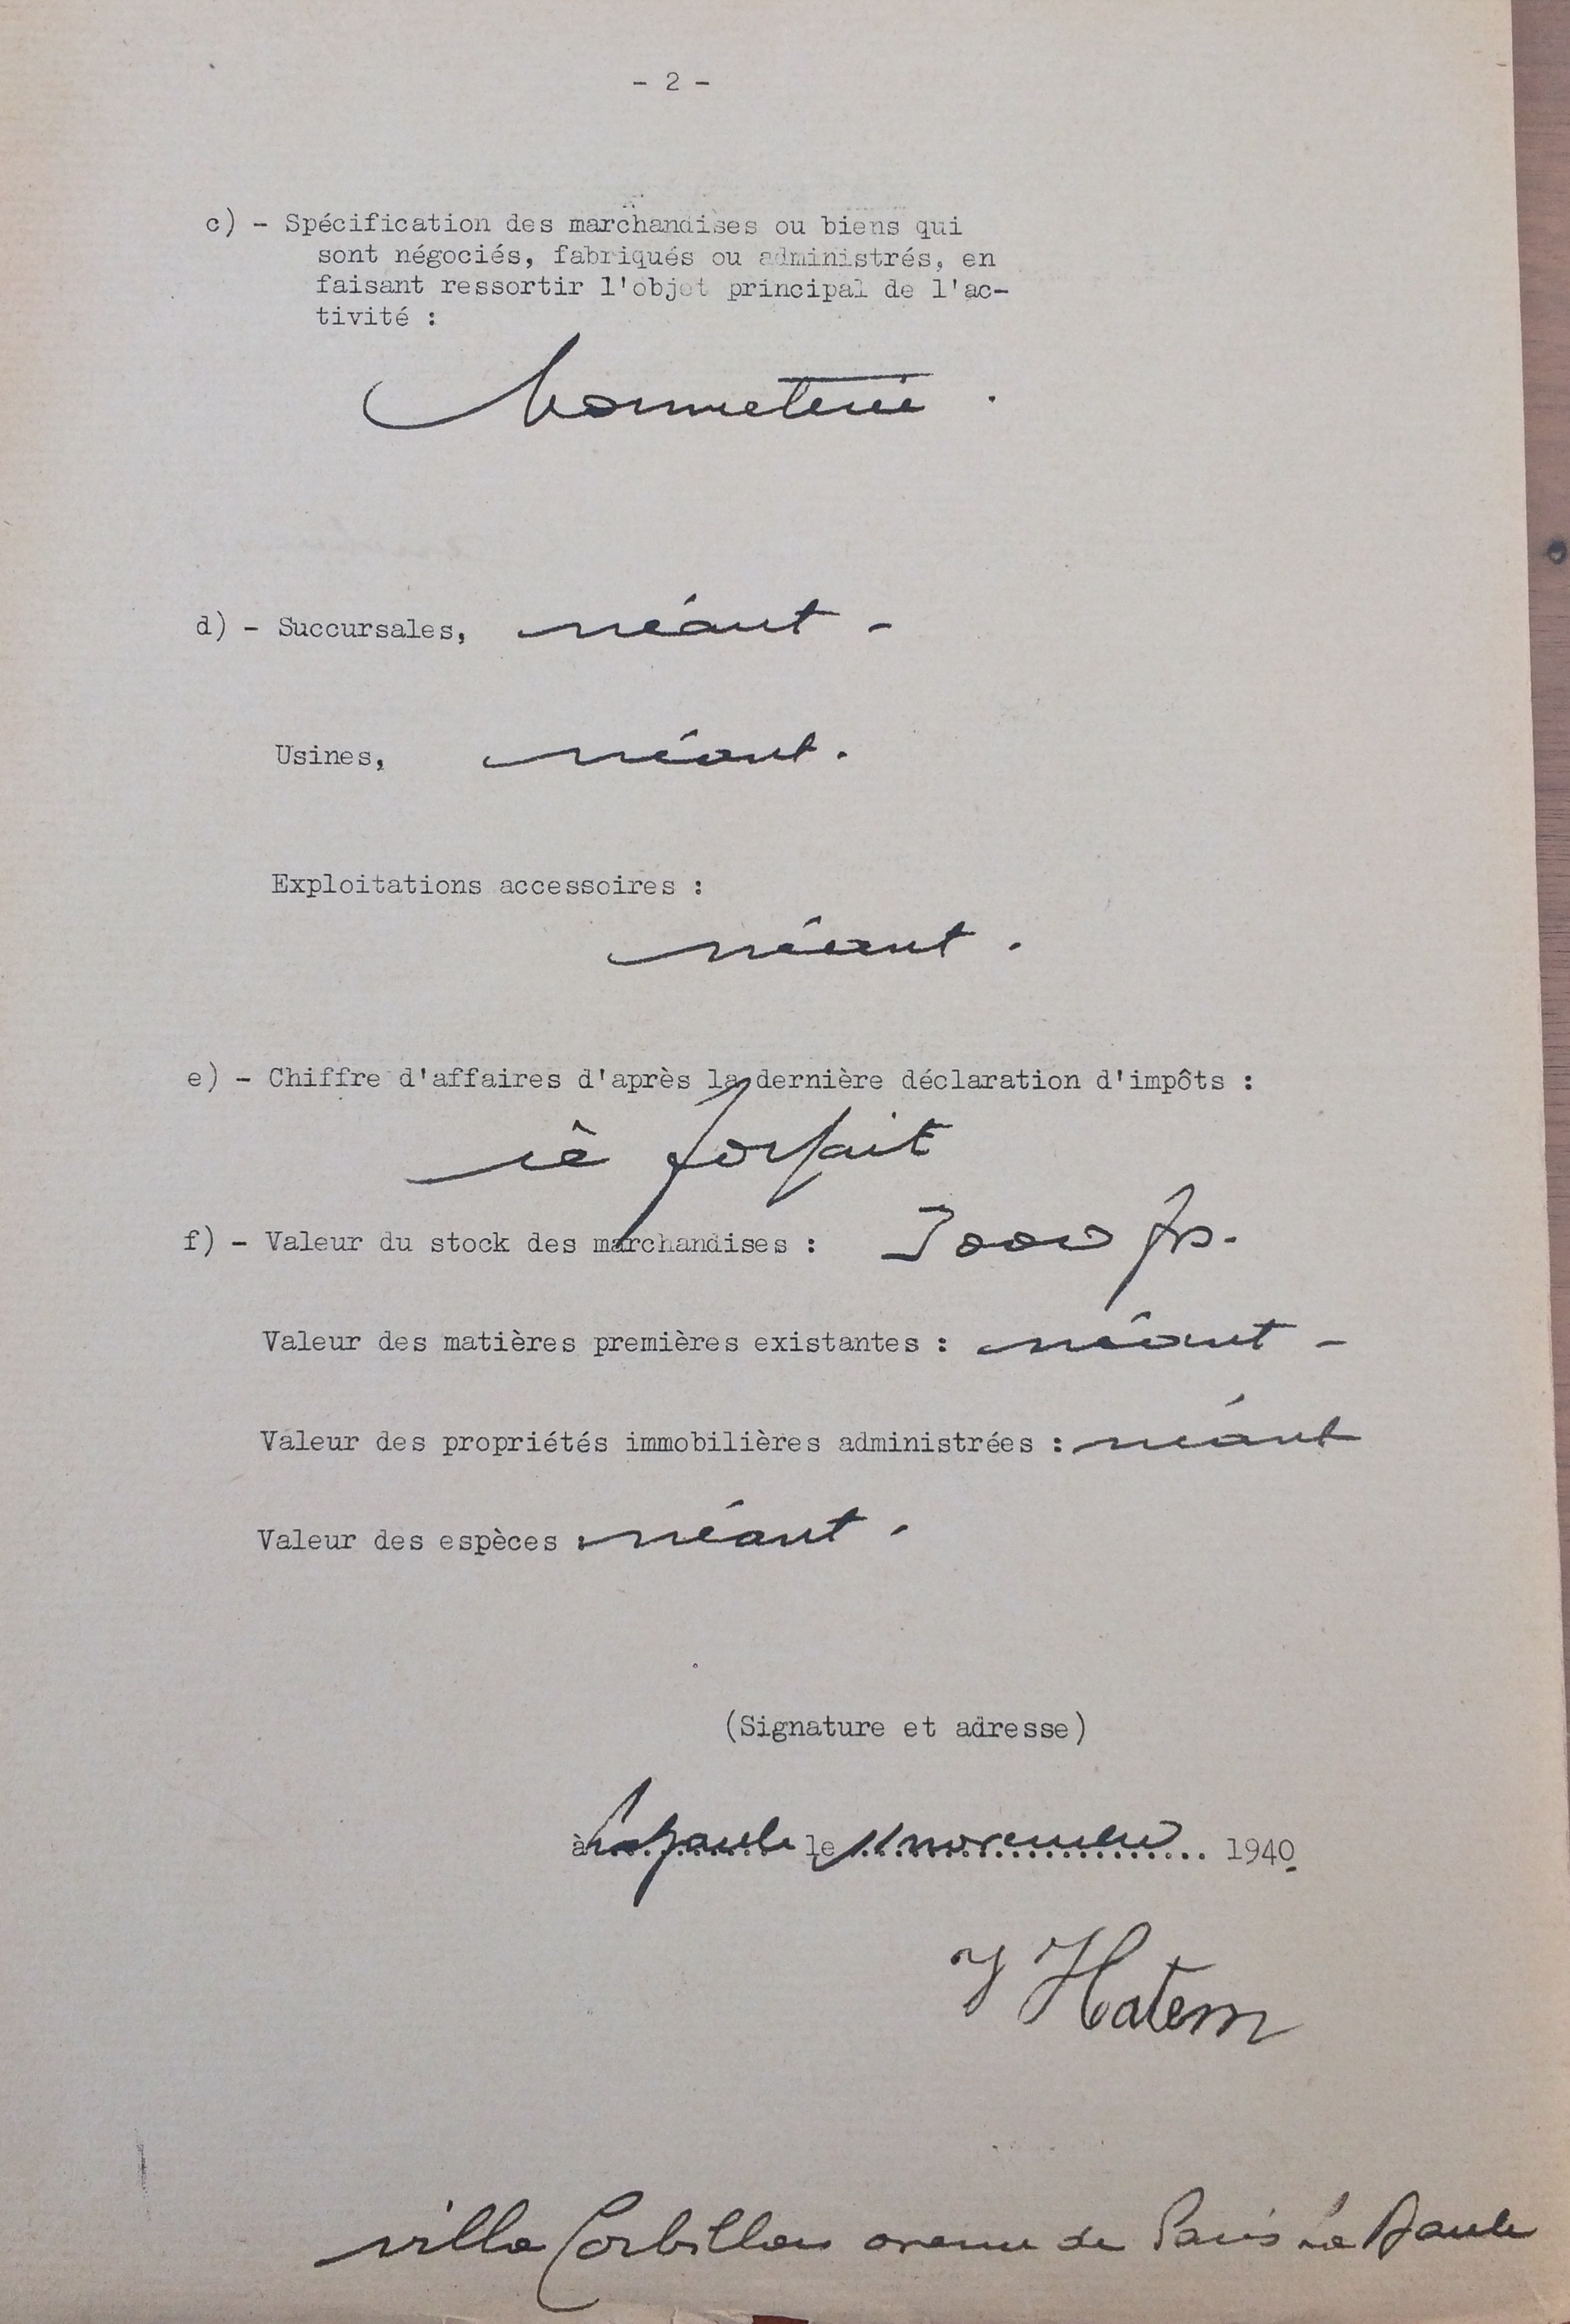 - 2 -
c) - Spécification des marchandises ou biens qui
sont négociés, fabriqués ou administrés, en
faisant ressortir l'objet principal de l'ac-
tivité :
bonneterie .
d) - Succursales, néant -
Usines, néant.
Exploitations accessoires :
néant .
e) - Chiffre d'affaires d'après la dernière déclaration d'impôts :
à forfait
f) - Valeur du stock des marchandises : 3000 frs.
Valeur des matières premières existantes : néant -
Valeur des propriétés immobilières administrées : néant
Valeur des espèces : néant .
(Signature et adresse)
à La Baule le 11 novembre 1940
Y Hatem
villa Corbillon avenue de Paris La Baule